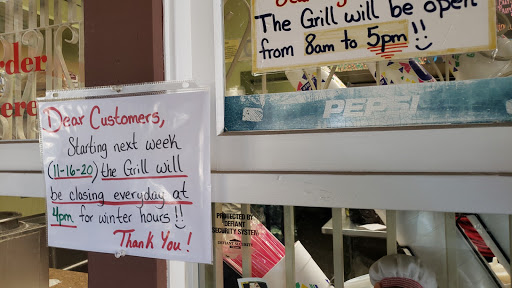 The Grill will be open
from 8am to 5pm!!
rder
ere
PEPSI
Dear Customers,
Starting next week
(11-16-20) the Grill will
be closing everyday at
4pm for winter hours!!
Thank You!
PROTECTED BY
DEFIANT
SECURITY SYSTEM